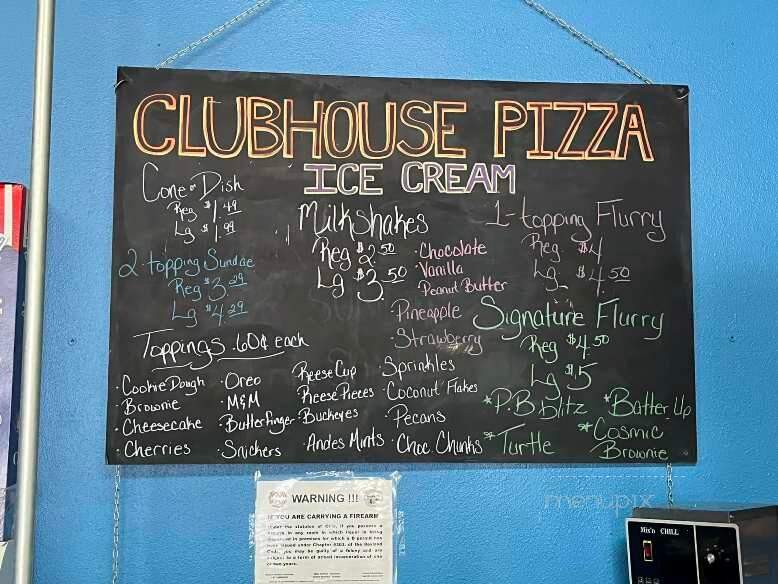 CLUBHOUSE PIZZA
ICE CREAM
Cone or Dish
Reg $1.49
Lg $1.99
2-topping Sundae
Reg $3.29
Lg $4.29
Milkshakes
Reg $2.50
Lg $3.50
• Chocolate
• Vanilla
Peanut Butter
• Pineapple
• Strawberry
1-topping Flurry
Reg $4
Lg $4.50
Signature Flurry
Reg $4.50
Lg $5
*P.B. Blitz *Batter Up
*Turtle *Cosmic
Brownie
Toppings .60¢ each
• Cookie Dough
Brownie
• Cheesecake
• Cherries
• Oreo
• M&M
• Butterfinger
• Snickers
Reese Cup
Reese Pieces
• Buckeyes
• Andes Mints
• Sprinkles
• Coconut Flakes
• Pecans
• Choc. Chunks
WARNING !!!
IF YOU ARE CARRYING A FIREARM
menupix
Mix'n CHILL